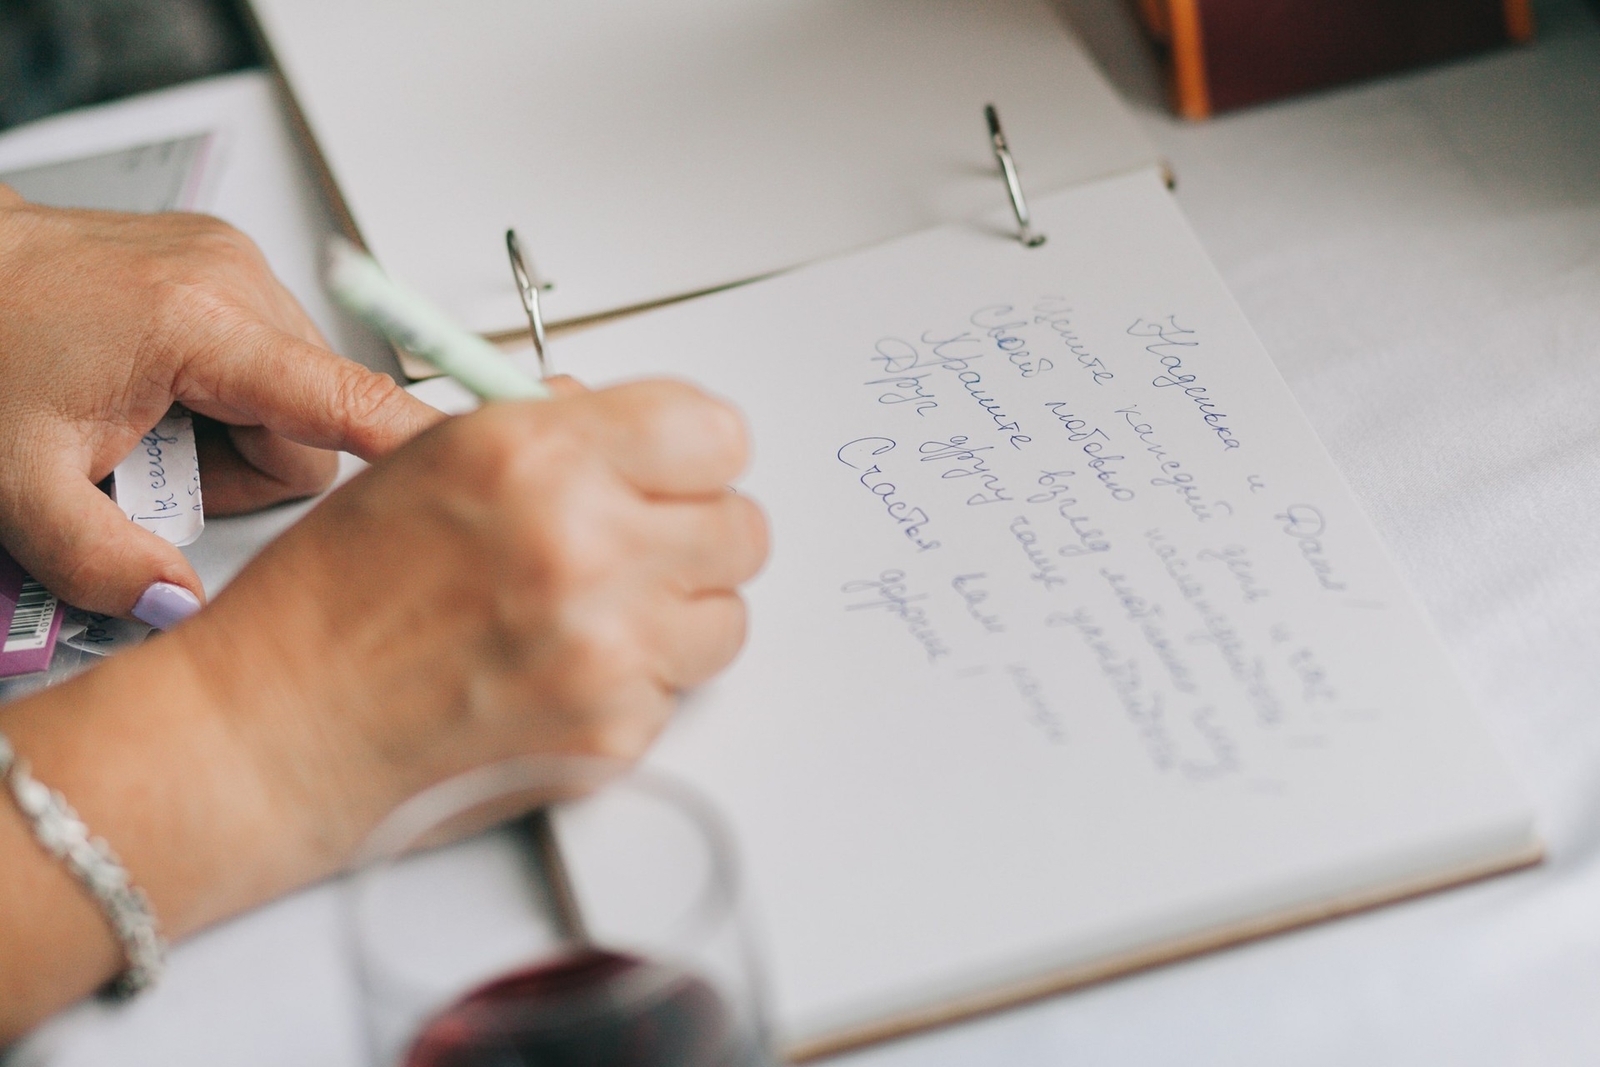 Наденька и Даня!
Цените каждый день и час!
Своей любовью наслаждайтесь!
Храните взгляд любимых глаз,
Друг другу чаще улыбайтесь!
Счастья вам наши
дорогие!